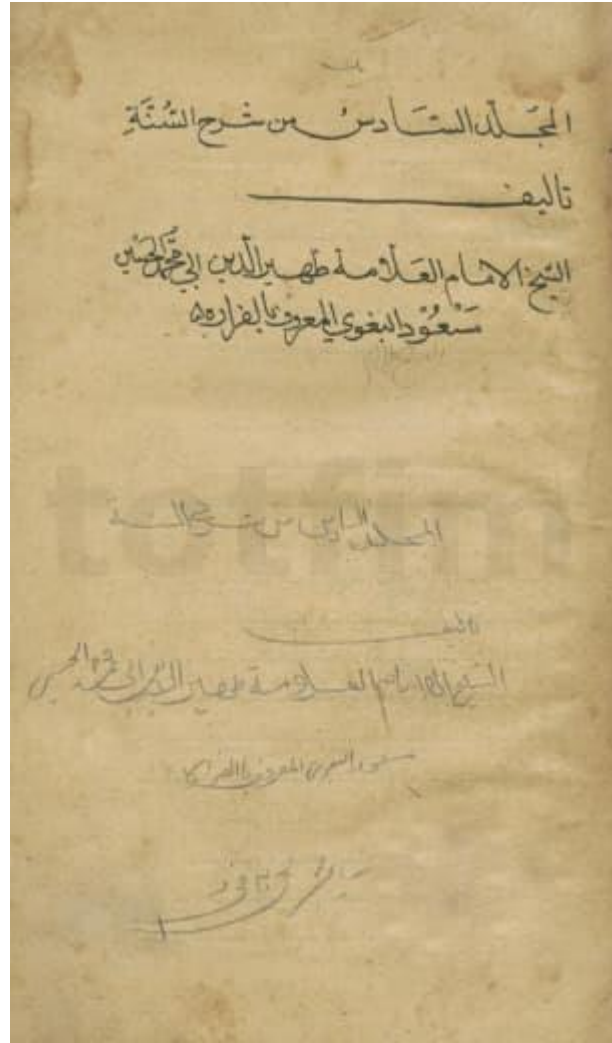 المجلد السادس من شرح السنة
تاليف
الشيخ الامام العلامة ظهير الدين ابي محمد الحسين
مسعود البغوي المعروف بالفراء
المجلد السادس من شرح السنة
تاليف
الشيخ الامام العلامة ظهير الدين ابي محمد الحسين
مسعود البغوي المعروف بالفرا